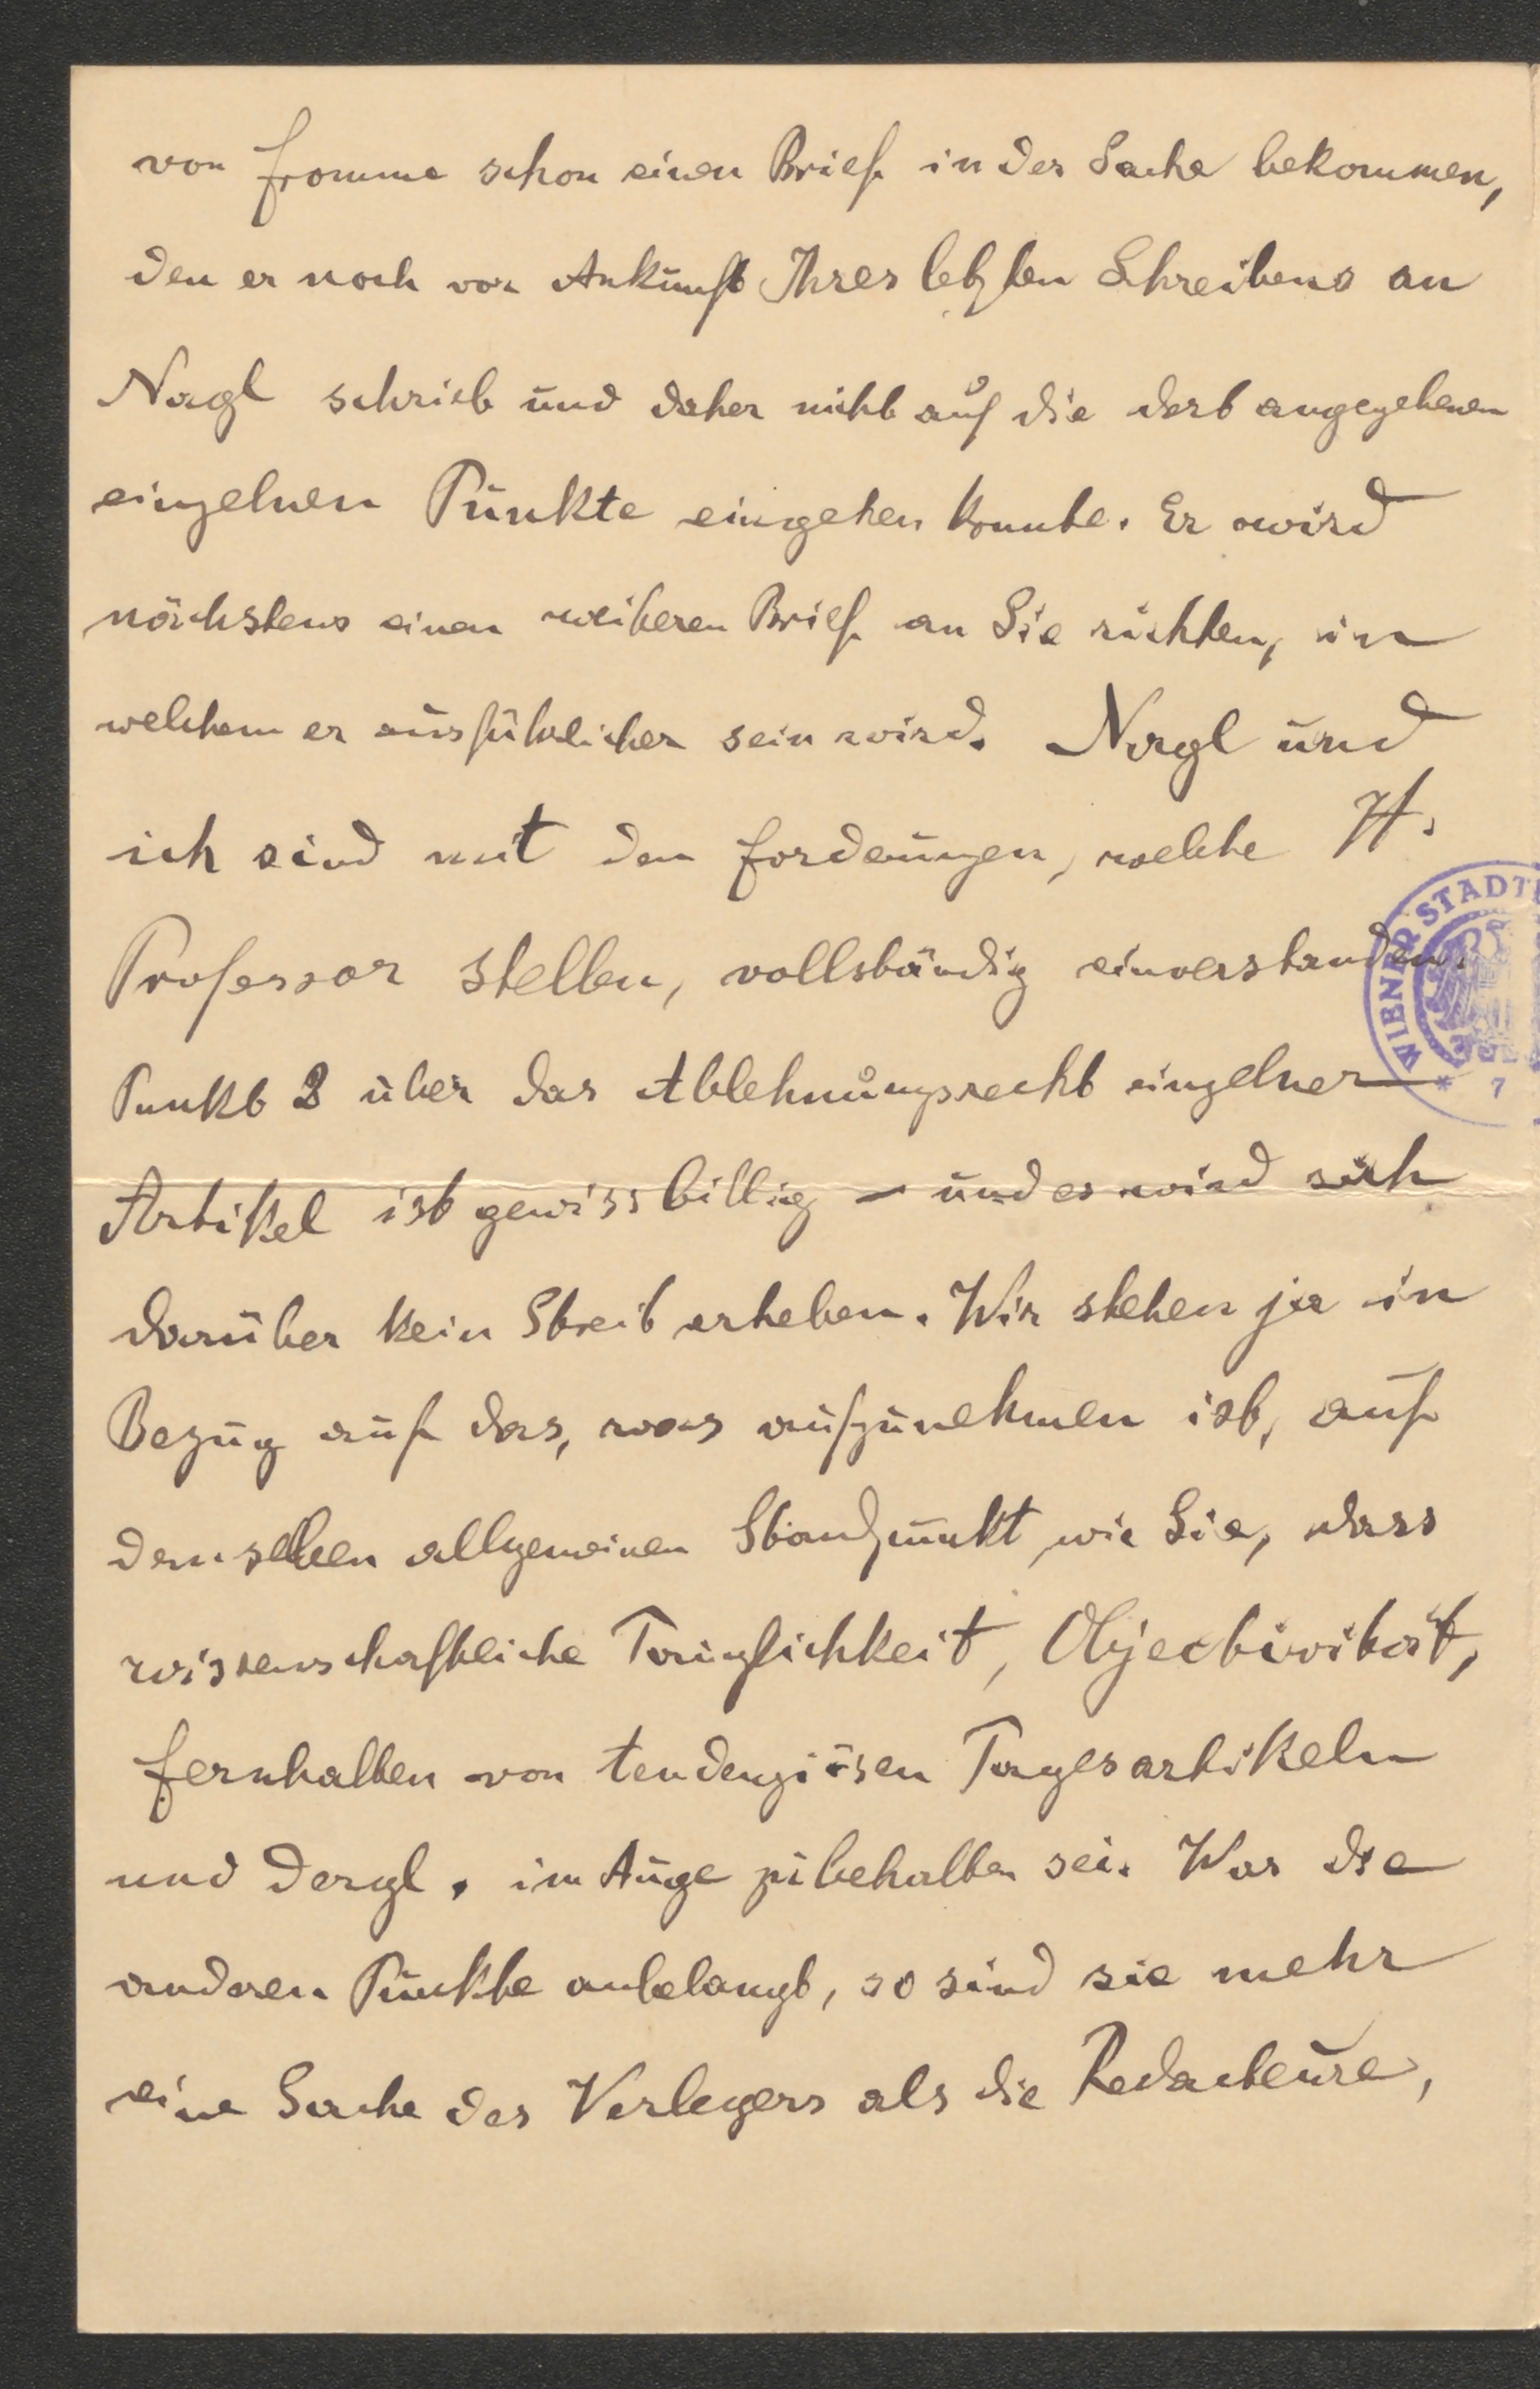 von Fromme schon einen Brief in der Sache bekommen,
den er noch vor Ankunft Ihres letzten Schreibens an
Nagl schrieb und daher nicht auf die dort angegebenen
einzelnen Punkte eingehen konnte. Er wird
nächstens einen weiteren Brief an Sie richten, in
welchem er ausführlicher sein wird. Nagl und
ich sind mit den Forderungen, welche H.
Professor stellen, vollständig einverstanden.
Punkt 3 über das Ablehnungsrecht einzelner
Artikel ist gewiss billig – und es wird sich
darüber kein Streit erheben. Wir stehen ja in
Bezug auf das, was aufzunehmen ist, auf
demselben allgemeinen Standpunkt wie Sie, dass
wissenschaftliche Tauglichkeit, Objectivität,
Fernhalten von tendenziösen Tagesartikeln
und dergl. im Auge zu behalten sei. Was die
anderen Punkte anbelangt, so sind sie mehr
eine Sache des Verlegers als die Redacteure,
WIENER STADT
* 7